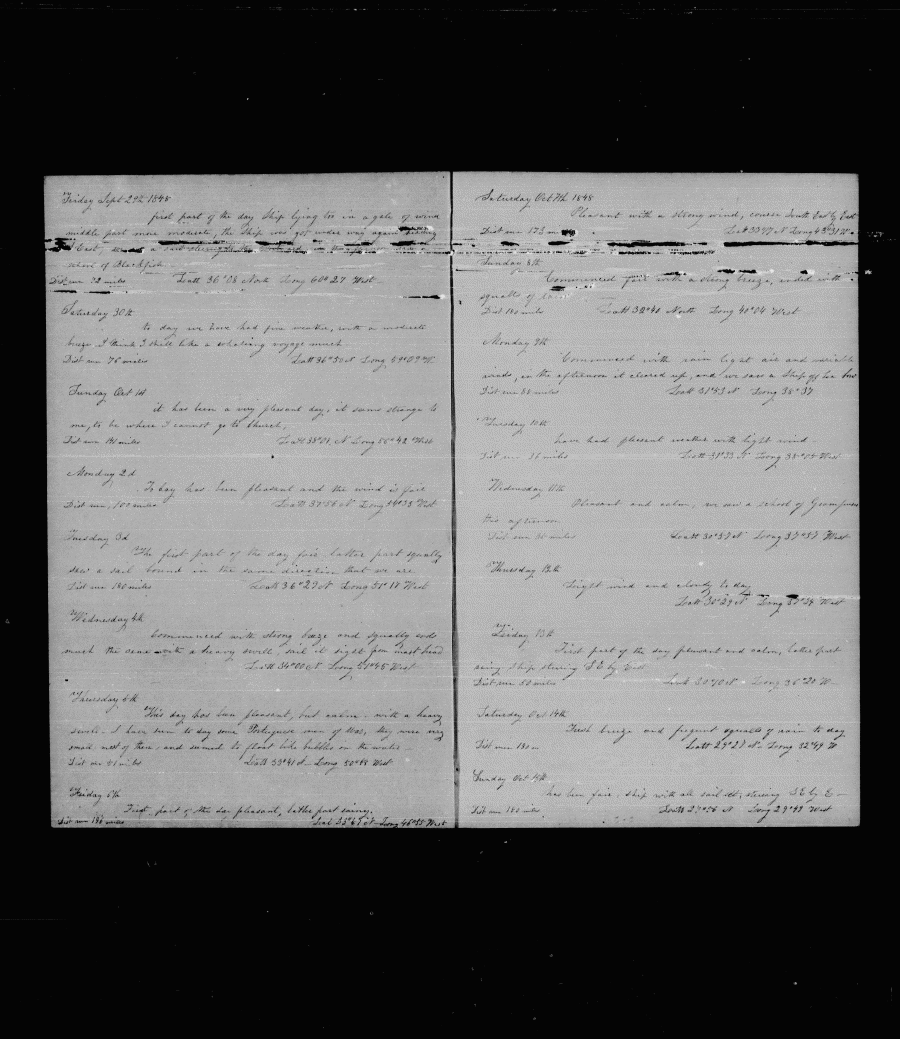 Friday Sept 29th 1848
first part of the day Ship lying too in a gale of wind
middle part more moderate, the Ship was got under way again
East, a Sail
school of Blackfish
Dist run 72 miles Latt 36°08 North Long 60°27 West
Saturday 30th
to day we have had fine weather, with a moderate
breeze I think I shall like a whaling voyage much
Dist run 76 miles Latt 36°50 N Long 59°09 W
Sunday Oct 1st
it has been a very pleasant day, it seems strange to
me, to be where I cannot go to Church,
Dist run 141 miles Latt 38°08 N Long 56°42 West
Monday 2d
To day has been pleasant and the wind is fair
Dist run, 100 miles Latt 37°56 N Long 54°33 West
Tuesday 3d
The first part of the day fair latter part squally
saw a sail bound in the same direction that we are
Dist run 140 miles Latt 36°29 N Long 51°18 West
Wednesday 4th
Commenced with strong breeze and squally
much the same with a heavy swell, sail in sight from mast head
Latt 34°00 N Long 51°45 West
Thursday 5th
This day has been pleasant, but calm with a heavy
swell. I have seen to day some Portuguese men of War, they were very
small most of them, and seemed to float like bubbles on the water
Dist run 41 miles Latt 33°41 N Long 50°48 West
Friday 6th
First part of the day pleasant, latter part rainy,
Dist run 186 miles Long 46°55 West
Saturday Oct 7th 1848
Pleasant with a strong wind, course South East by East
Dist run 173 m Long 43°31 W
Sunday 8th
Commenced fair with a strong breeze, ended with
squalls of rain
Dist run 180 miles Latt 32°40 North Long 40°04 West
Monday 9th
Commenced with rain light air and variable
winds, in the afternoon it cleared up, and we saw a Ship off Lee bow
Dist run 88 miles Latt 31°53 N Long 38°37
Tuesday 10th
have had pleasant weather with light wind
Dist run 36 miles Latt 31°33 N Long 38°05 West
Wednesday 11th
Pleasant and calm, we saw a school of Grampuses
this afternoon
Dist run miles Latt 30°57 N Long 37°57 West
Thursday 12th
Light wind and cloudy to day
Latt 30°29 N Long 37°34 West
Friday 13th
First part of the day pleasant and calm, latter part
rainy Ship steering S E by East
Dist run 50 miles Long 36°20 W
Saturday Oct 14th
Fresh breeze and frequent squalls of rain to day
Dist run 180 m Latt 29°28 N Long 32°49 W
Sunday Oct 15th
has been fair, Ship with all sail set, steering S E by E
Dist run 180 miles Latt 27°26 N Long 29°49 West